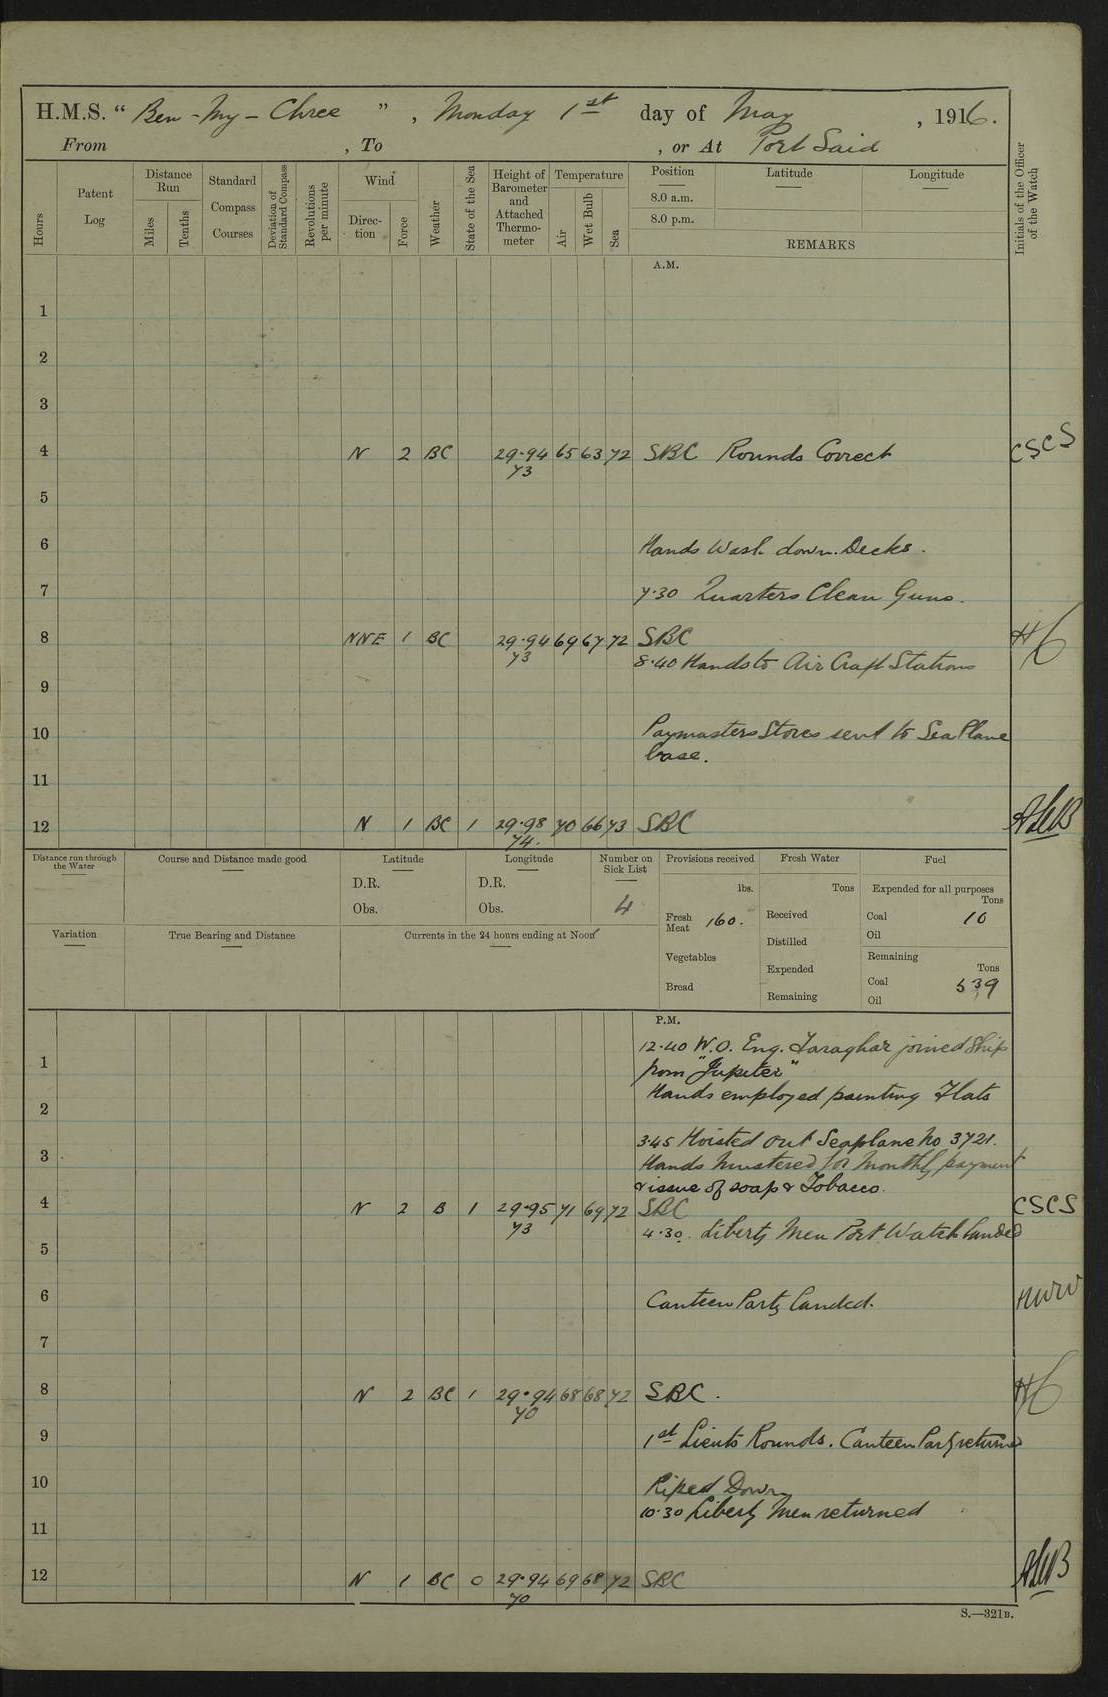 H.M.S. " Ben-My-Chree ", Monday 1st day of May, 1916.
From , To , or At Port Said
Hours
Patent Log
Distance Run
Miles
Tenths
Standard Compass Courses
Deviation of Standard Compass
Revolutions per minute
Wind
Direction
Force
Weather
State of the Sea
Height of Barometer and Attached Thermometer
Temperature
Air
Wet Bulb
Sea
Position
Latitude
Longitude
8.0 a.m.
8.0 p.m.
REMARKS
Initials of the Officer of the Watch
A.M.
1
2
3
4 N 2 BC 29.94 65 63 72 SBC Rounds Correct CSCS
73
5
6 Hands Wash down Decks.
7 7.30 Quarters Clean Guns.
8 NNE 1 BC 29.94 69 67 72 SBC
73 8.40 Hands to Air Craft Stations
9
10 Paymasters Stores sent to Sea Plane
base.
11
12 N 1 BC 1 29.98 70 66 73 SBC
74.
Distance run through the Water
Course and Distance made good
Latitude
D.R.
Obs.
Longitude
D.R.
Obs.
Number on Sick List
4
Provisions received
lbs.
Fresh Meat 160.
Vegetables
Bread
Fresh Water
Tons
Received
Distilled
Expended
Remaining
Fuel
Expended for all purposes
Tons
Coal 10
Oil
Remaining
Tons
Coal 539
Oil
Variation
True Bearing and Distance
Currents in the 24 hours ending at Noon
P.M.
12.40 W.O. Eng. joined Ship
1 from "Jupiter"
Hands employed painting Flats
2
3.45 Hoisted out Seaplane No 3721.
3 Hands Mustered for Monthly payment
& issue of soap & Tobacco.
4 N 2 B 1 29.95 71 69 72 SBC CSCS
73 4.30. Liberty Men Port Watch landed
5
6 Canteen Party landed. HWW
7
8 N 2 BC 1 29.94 68 68 72 SBC.
70
9 1st Lieuts Rounds. Canteen Party returned
10 Piped Down
10.30 Liberty Men returned
11
12 N 1 BC 0 29.94 69 68 72 SBC
70
S.—321B.